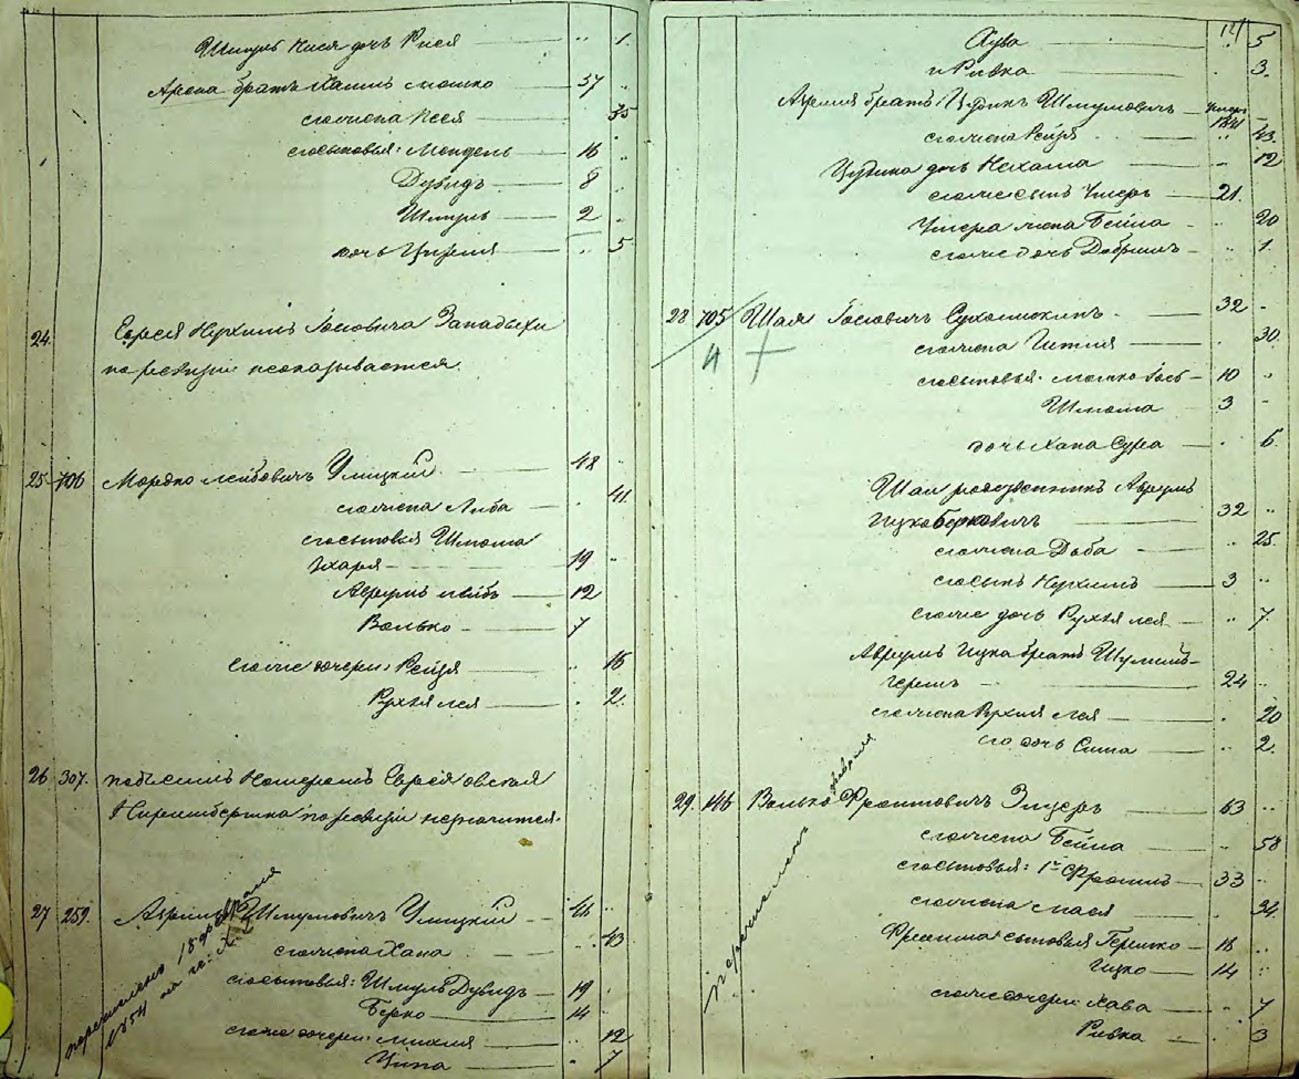 Шмуль Нися дочь Рися — " 1.
Арона братъ Хаимъ Мошко — 37 "
его жена Песя — 35
его сыновья: Мендель — 16 "
Дувидъ — 8 "
Шмуль — 2 "
дочь Ципра — " 5
24. Еврея Нухимъ Іосіовича
по ревизіи непоказывается.
25 706 Мордко Лейбовичъ Улицкій — 48 "
его жена Либа — 41
его сыновья Шліома
Зхарья — 19
Аврумъ Лейбъ — 12
Волько — 7
его же дочери: Рейзя — " 16
Рухля Лея — 2.
26 307. подъ симъ Номеромъ Еврей
по ревизіи незначится.
27 259. Шмулиовичъ Улицкій — 41 "
его жена Хана — 43
его сыновья: Шмуль Дувидъ — 19
Берко — 14
его же дочери: — " 12
Ципа — " 7
перечислено 18 февраля
1854
14
Хува — " 5
и Ривка — " 3.
братъ Шмулиовичъ — умеръ 1841 —
его жена Рейзя — " 43.
дочь Нехама — " 12
его же сынъ Умеръ — 21.
Умера жена Бейла — " 20
его же дочь Добришъ — " 1.
28 705 Шая Іосіовичъ — 32 "
4
его жена Гитля — 30.
его сыновья: Мошко Іось — 10 "
Шліома — 3 "
дочь Хана Сура — 6.
Шаи родственникъ Аврумъ
Ицко Берковичъ — 32 "
его жена Доба — " 25.
его сынъ Нухимъ — 3 "
его же дочь Рухля Лея — " 7.
Аврумъ Ицка братъ Шулимъ-
Герш — 24 "
его жена Рухля Лея — 20
его дочь Сима — " 2.
29. 146 Волько Фроимовичъ — 63 "
его жена Бейла — " 58
его сыновья: 1й Фроимъ — 33 "
его жена Мася — 34.
Фроима сыновья Гершко — 18 "
Ицко — 14 "
его же дочери Хава — " 7
Ривка — " 3
перечисленъ
февраля